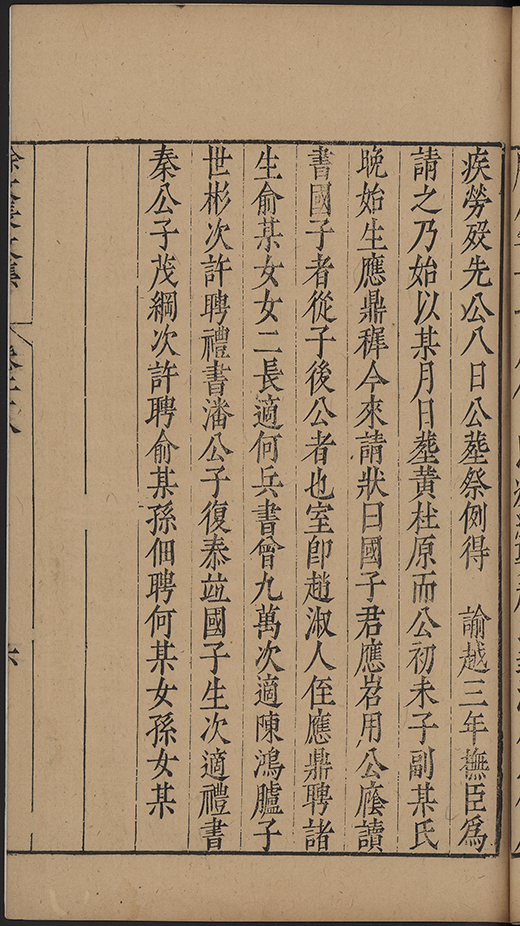 疾勞殁先公八日公塟祭例得　諭越三年撫臣爲
請之乃始以某月日塟黄杜原而公初未子副某氏
晩始生應鼎穉今來請狀曰國子君應岩用公廕讀
書國子者從子後公者也室卽趙淑人侄應鼎聘諸
生俞某女女二長適何兵書曾九萬次適陳鴻臚子
世彬次許聘禮書潘公子復泰竝國子生次適禮書
秦公子茂綱次許聘俞某孫佃聘何某女孫女某